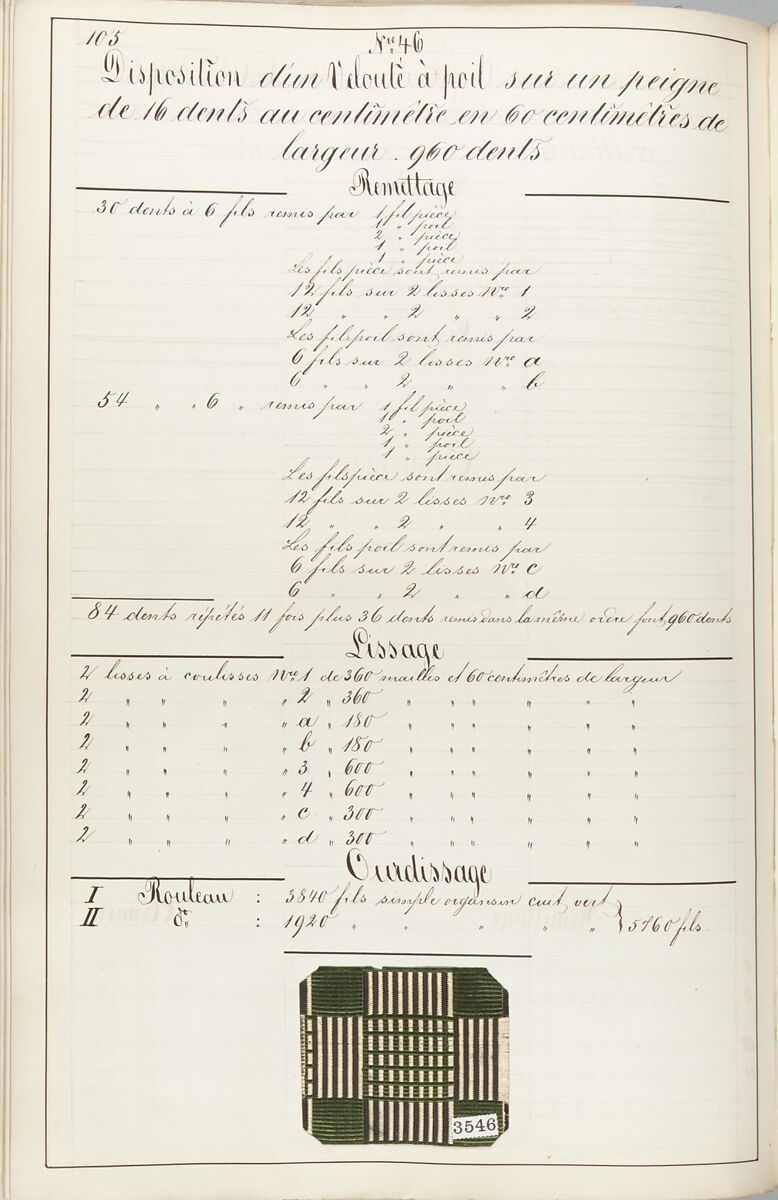 105
Nro 46
Disposition d'un Velouté à poil sur un peigne
de 16 dents au centimêtre en 60 centimêtres de
largeur. 960 dents
Remettage
30 dents à 6 fils remis par 1 fil pièce
1 " poil
2 " pièce
1 " poil
1 " pièce
Les fils pièce sont remis par
12 fils sur 2 lisses Nro 1
12 " " 2 " " 2
Les fils poil sont remis par
6 fils sur 2 lisses Nro a
6 " " 2 " " b
54 " " 6 " remis par 1 fil pièce
1 " poil
2 " pièce
1 " poil
1 " pièce
Les fils pièce sont remis par
12 fils sur 2 lisses Nro 3
12 " " 2 " " 4
Les fils poil sont remis par
6 fils sur 2 lisses Nro c
6 " " 2 " " d
84 dents répétés 11 fois plus 36 dents remis dans la même ordre font 960 dents
Lissage
2 lisses à coulisses Nro 1 de 360 mailles et 60 centimêtres de largeur
2 " " " " 2 " 360 " " " " "
2 " " " " a " 180 " " " " "
2 " " " " b " 180 " " " " "
2 " " " " 3 " 600 " " " " "
2 " " " " 4 " 600 " " " " "
2 " " " " c " 300 " " " " "
2 " " " " d " 300 " " " " "
Ourdissage
I Rouleau : 3840 fils simple organsin cuit vert
II do : 1920 " " " " " } 5760 fils
3546